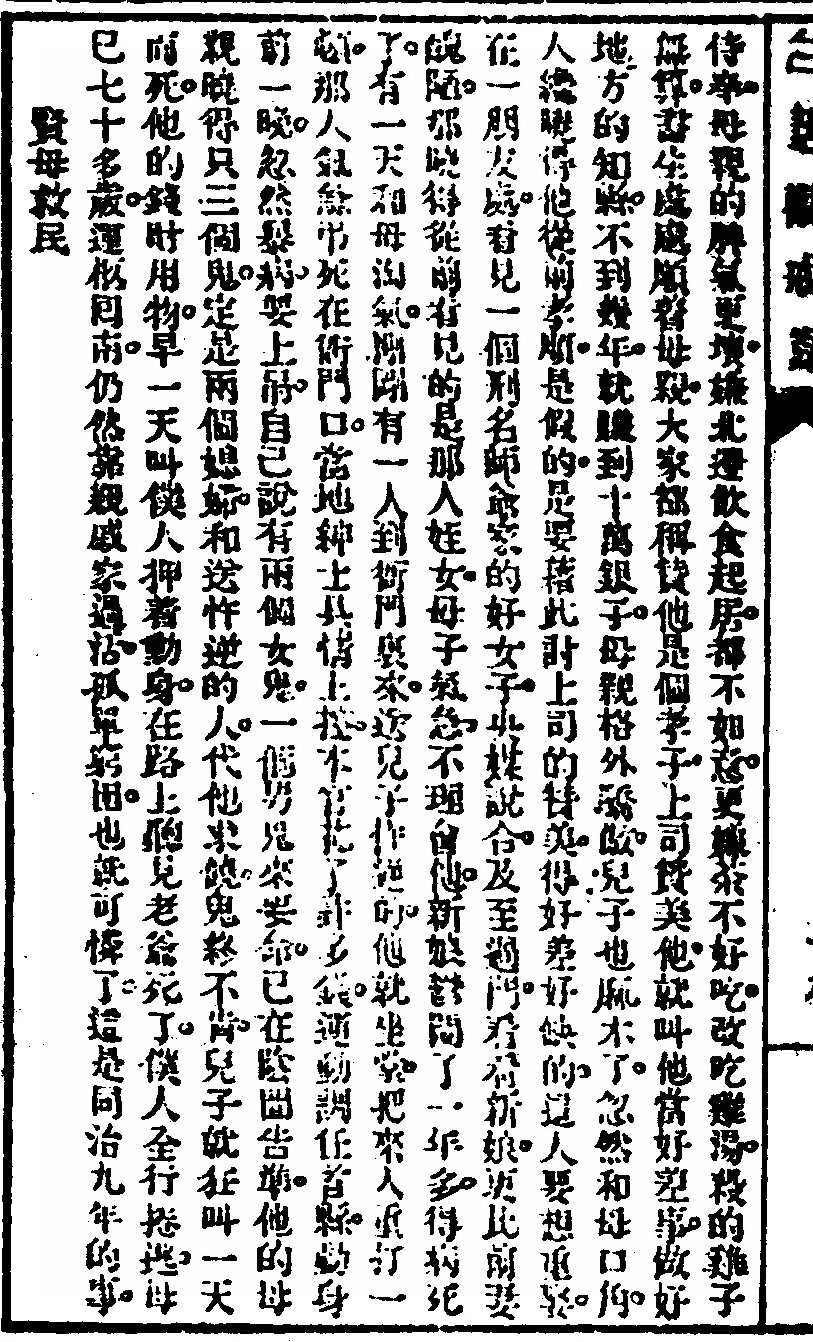 侍奉母親的脾氣更壞嫌北邊飲食起居都不如意更嫌茶不好吃改吃雞湯殺的雞子
無算書生處處順着母親大家都稱贊他是個孝子上司贊美他就叫他當好差事做好
地方的知縣不到幾年就賺到十萬銀子母親格外驕傲兒子也麻木了忽然和母口角
人纔曉得他從前孝順是假的是要藉此討上司的贊美得好差好缺的這人要想重娶
在一朋友處看見一個刑名師爺家的好女子央媒說合及至過門看看新娘更比前妻
醜陋那曉得從前看見的是那人姪女母子氣急不理會他新娘鬱悶了一年多得病死
了有一天和母淘氣剛剛有一人到衙門裏來送兒子忤逆的他就坐堂把來人重打一
頓那人氣餘吊死在衙門口當地紳士具情上控本官花了許多錢運動調任首縣動身
前一晚忽然暴病要上吊自己說有兩個女鬼一個男鬼來要命已在陰間告準他的母
親曉得只三個鬼定是兩個媳婦和送忤逆的人代他求饒鬼終不肯兒子就狂叫一天
而死他的錢財用物早一天叫僕人押着動身在路上聽見老爺死了僕人全行捲逃母
已七十多歲運柩回南仍然靠親戚家過活孤單窮困也就可憐了這是同治九年的事
賢母救民